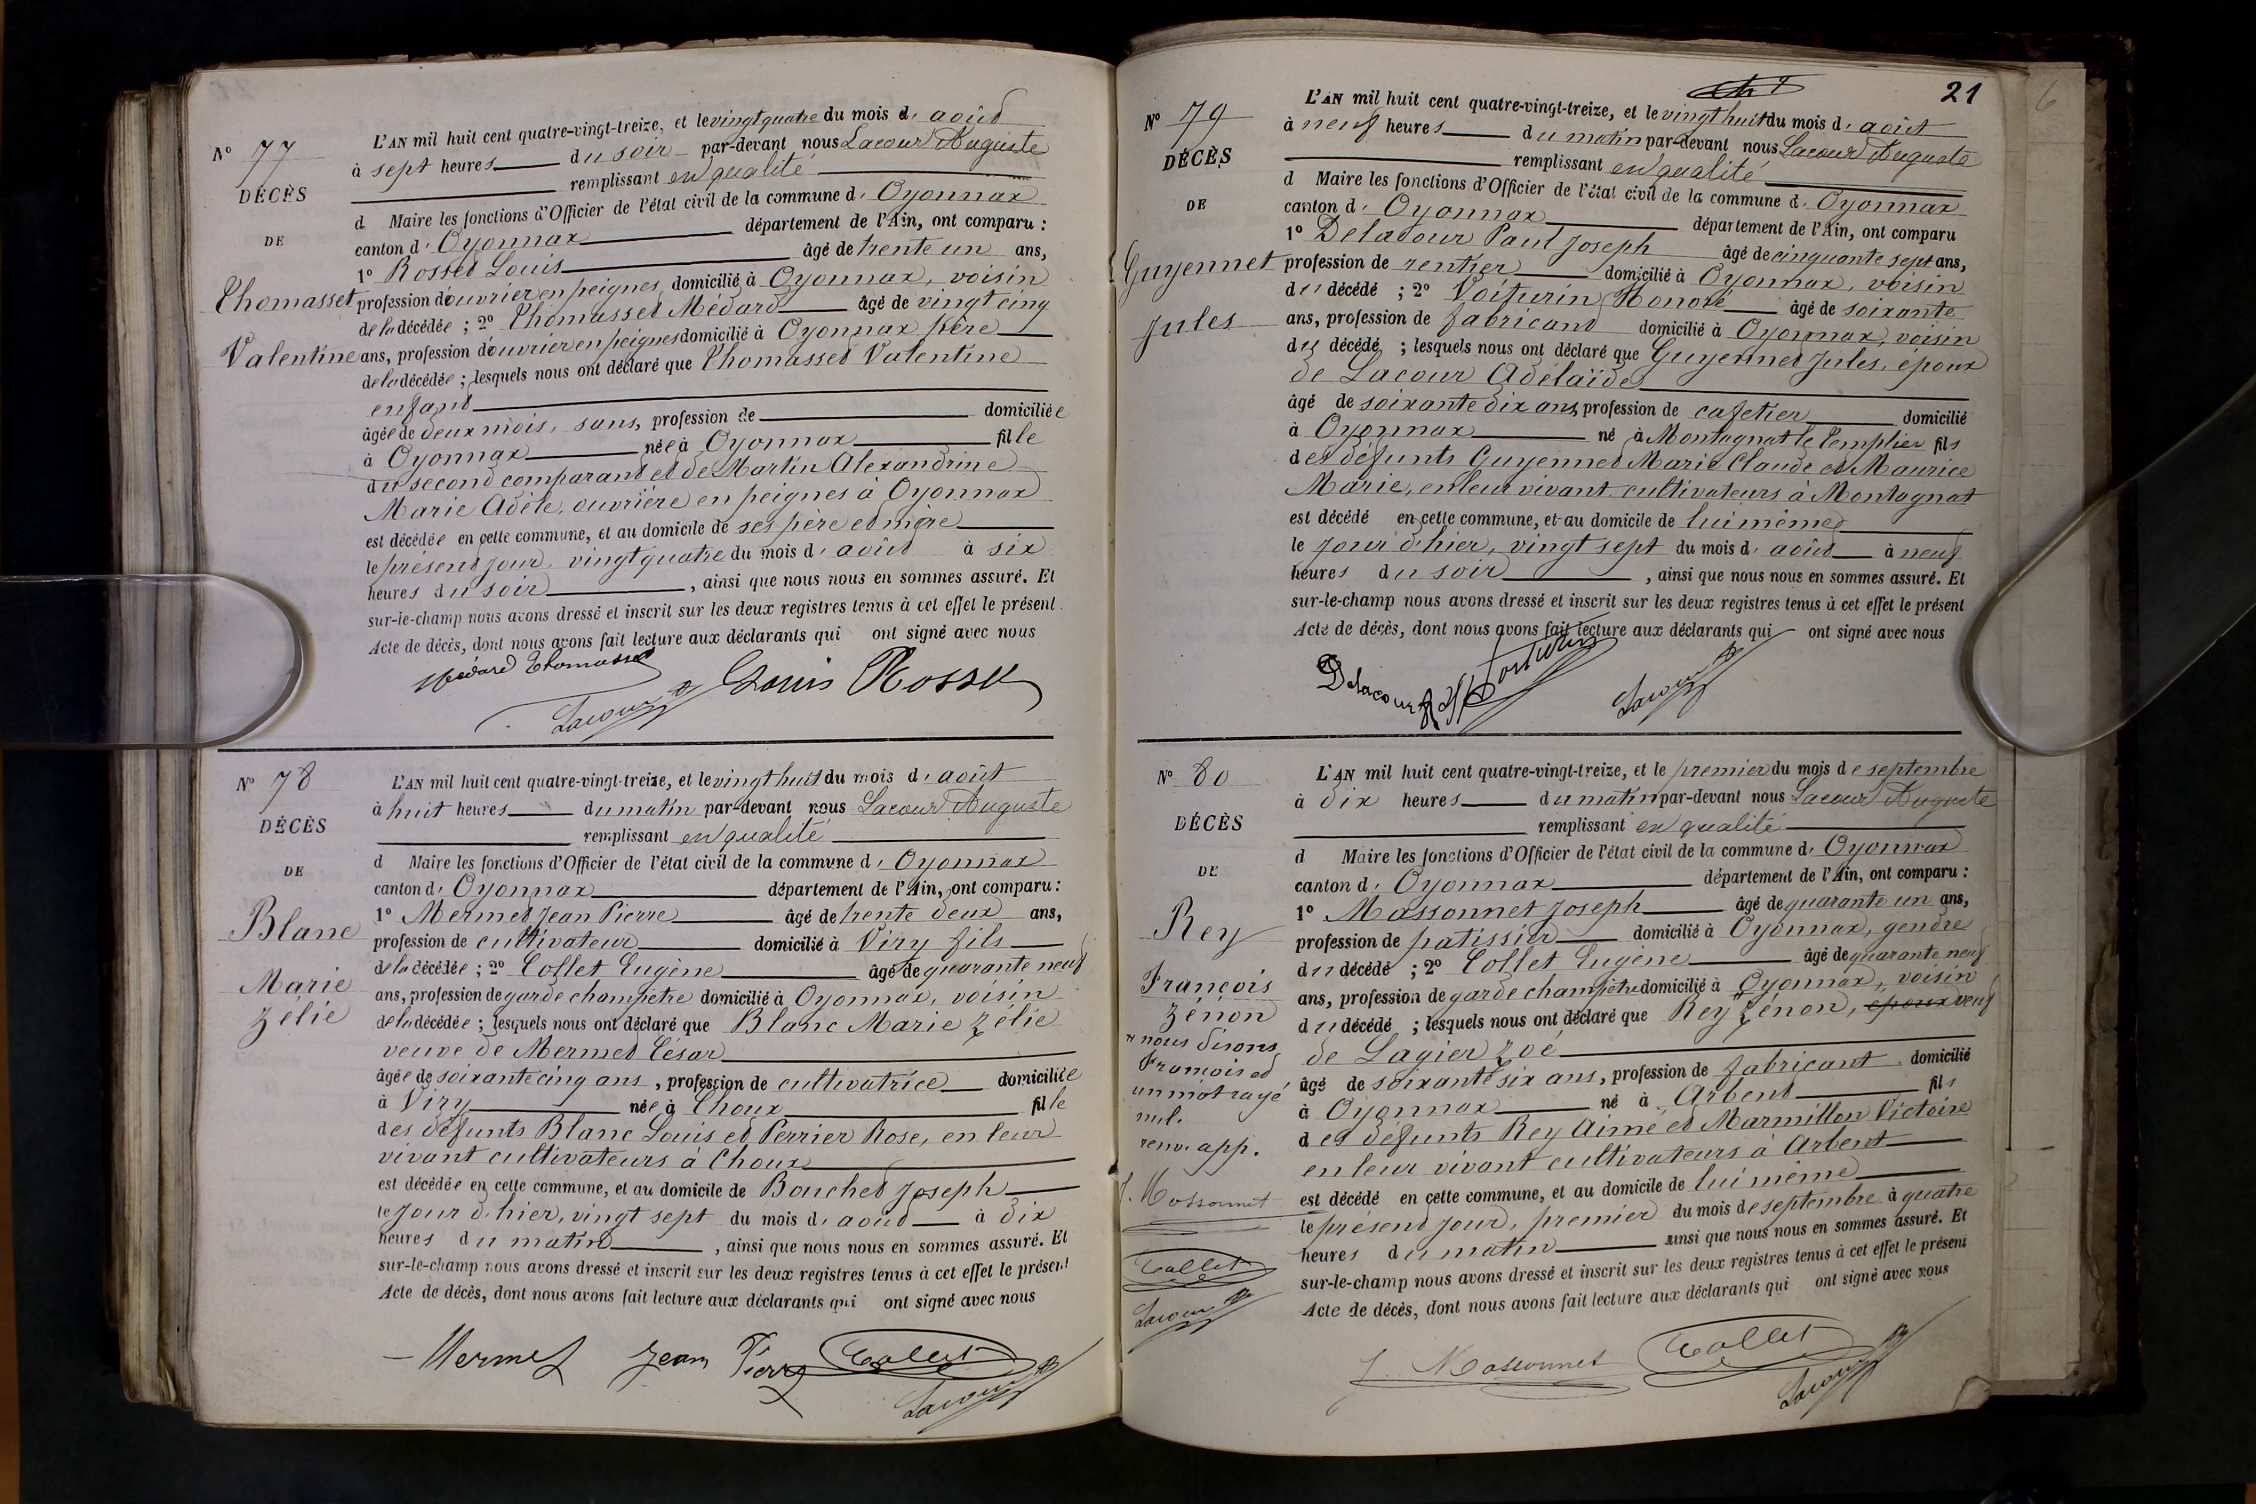 N° 77
DÉCÈS
DE
Thomasset
Valentine
L'AN mil huit cent quatre-vingt-treize, et le vingt quatre du mois d'août
à sept heures du soir par-devant nous Lacour Auguste
remplissant en qualité
d Maire les fonctions d'Officier de l'état civil de la commune d'Oyonnax
canton d'Oyonnax département de l'Ain, ont comparu :
1° Rosset Louis âgé de trente un ans,
profession d'ouvrier en peignes domicilié à Oyonnax, voisin
de la décédée ; 2° Thomasset Médard âgé de vingt cinq
ans, profession d'ouvrier en peignes domicilié à Oyonnax père
de la décédée ; lesquels nous ont déclaré que Thomasset Valentine
enfant
âgée de deux mois, sans, profession de domiciliée
à Oyonnax née à Oyonnax fille
du second comparant et de Martin Alexandrine
Marie Adèle, ouvrière en peignes à Oyonnax
est décédée en cette commune, et au domicile de ses père et mère
le présent jour, vingt quatre du mois d'août à six
heures du soir, ainsi que nous nous en sommes assuré. Et
sur-le-champ nous avons dressé et inscrit sur les deux registres tenus à cet effet le présent
Acte de décès, dont nous avons fait lecture aux déclarants qui ont signé avec nous
Médard Thomasset
Louis Rosset
Lacour
N° 78
DÉCÈS
DE
Blanc
Marie
Zélie
L'AN mil huit cent quatre-vingt-treize, et le vingt huit du mois d'août
à huit heures du matin par-devant nous Lacour Auguste
remplissant en qualité
d Maire les fonctions d'Officier de l'état civil de la commune d'Oyonnax
canton d'Oyonnax département de l'Ain, ont comparu :
1° Mermet Jean Pierre âgé de trente deux ans,
profession de cultivateur domicilié à Viry fils
de la décédée ; 2° Collet Eugène âgé de quarante neuf
ans, profession de garde champêtre domicilié à Oyonnax, voisin
de la décédée ; lesquels nous ont déclaré que Blanc Marie Zélie
veuve de Mermet César
âgée de soixante cinq ans, profession de cultivatrice domiciliée
à Viry née à Choux fille
des défunts Blanc Louis et Perrier Rose, en leur
vivant cultivateurs à Choux
est décédée en cette commune, et au domicile de Bouchet Joseph
le jour d'hier, vingt sept du mois d'août à dix
heures du matin, ainsi que nous nous en sommes assuré. Et
sur-le-champ nous avons dressé et inscrit sur les deux registres tenus à cet effet le présent
Acte de décès, dont nous avons fait lecture aux déclarants qui ont signé avec nous
Mermet Jean Pierre
Collet
Lacour
21
6
N° 79
DÉCÈS
DE
Guyennet
Jules
L'AN mil huit cent quatre-vingt-treize, et le vingt huit du mois d'août
à neuf heures du matin par-devant nous Lacour Auguste
remplissant en qualité
d Maire les fonctions d'Officier de l'état civil de la commune d'Oyonnax
canton d'Oyonnax département de l'Ain, ont comparu
1° Delacour Paul Joseph âgé de cinquante sept ans,
profession de rentier domicilié à Oyonnax, voisin
du décédé ; 2° Voiturin Honoré âgé de soixante
ans, profession de fabricant domicilié à Oyonnax, voisin
du décédé ; lesquels nous ont déclaré que Guyennet Jules, époux
de Lacour Adélaïde
âgé de soixante dix ans, profession de cafetier domicilié
à Oyonnax né à Montagnat le Templier fils
des défunts Guyennet Marie Claude et Maurice
Marie, en leur vivant cultivateurs à Montagnat
est décédé en cette commune, et au domicile de lui même
le jour d'hier, vingt sept du mois d'août à neuf
heures du soir, ainsi que nous nous en sommes assuré. Et
sur-le-champ nous avons dressé et inscrit sur les deux registres tenus à cet effet le présent
Acte de décès, dont nous avons fait lecture aux déclarants qui ont signé avec nous
Delacour
Voiturin
Lacour
N° 80
DÉCÈS
DE
Rey
François
Zénon
nous disons
François et
un mot rayé
nul.
renv. app.
J. Massonnet
Collet
Lacour
L'AN mil huit cent quatre-vingt-treize, et le premier du mois de septembre
à dix heures du matin par-devant nous Lacour Auguste
remplissant en qualité
d Maire les fonctions d'Officier de l'état civil de la commune d'Oyonnax
canton d'Oyonnax département de l'Ain, ont comparu :
1° Massonnet Joseph âgé de quarante un ans,
profession de patissier domicilié à Oyonnax, gendre
du décédé ; 2° Collet Eugène âgé de quarante neuf
ans, profession de garde champêtre domicilié à Oyonnax, voisin
du décédé ; lesquels nous ont déclaré que Rey Zénon, époux veuf
de Lagier Zoé
âgé de soixante six ans, profession de fabricant domicilié
à Oyonnax né à Arbent fils
des défunts Rey Aimé et Marmillon Victoire
en leur vivant cultivateurs à Arbent
est décédé en cette commune, et au domicile de lui même
le présent jour, premier du mois de septembre à quatre
heures du matin ainsi que nous nous en sommes assuré. Et
sur-le-champ nous avons dressé et inscrit sur les deux registres tenus à cet effet le présent
Acte de décès, dont nous avons fait lecture aux déclarants qui ont signé avec nous
J. Massonnet
Collet
Lacour